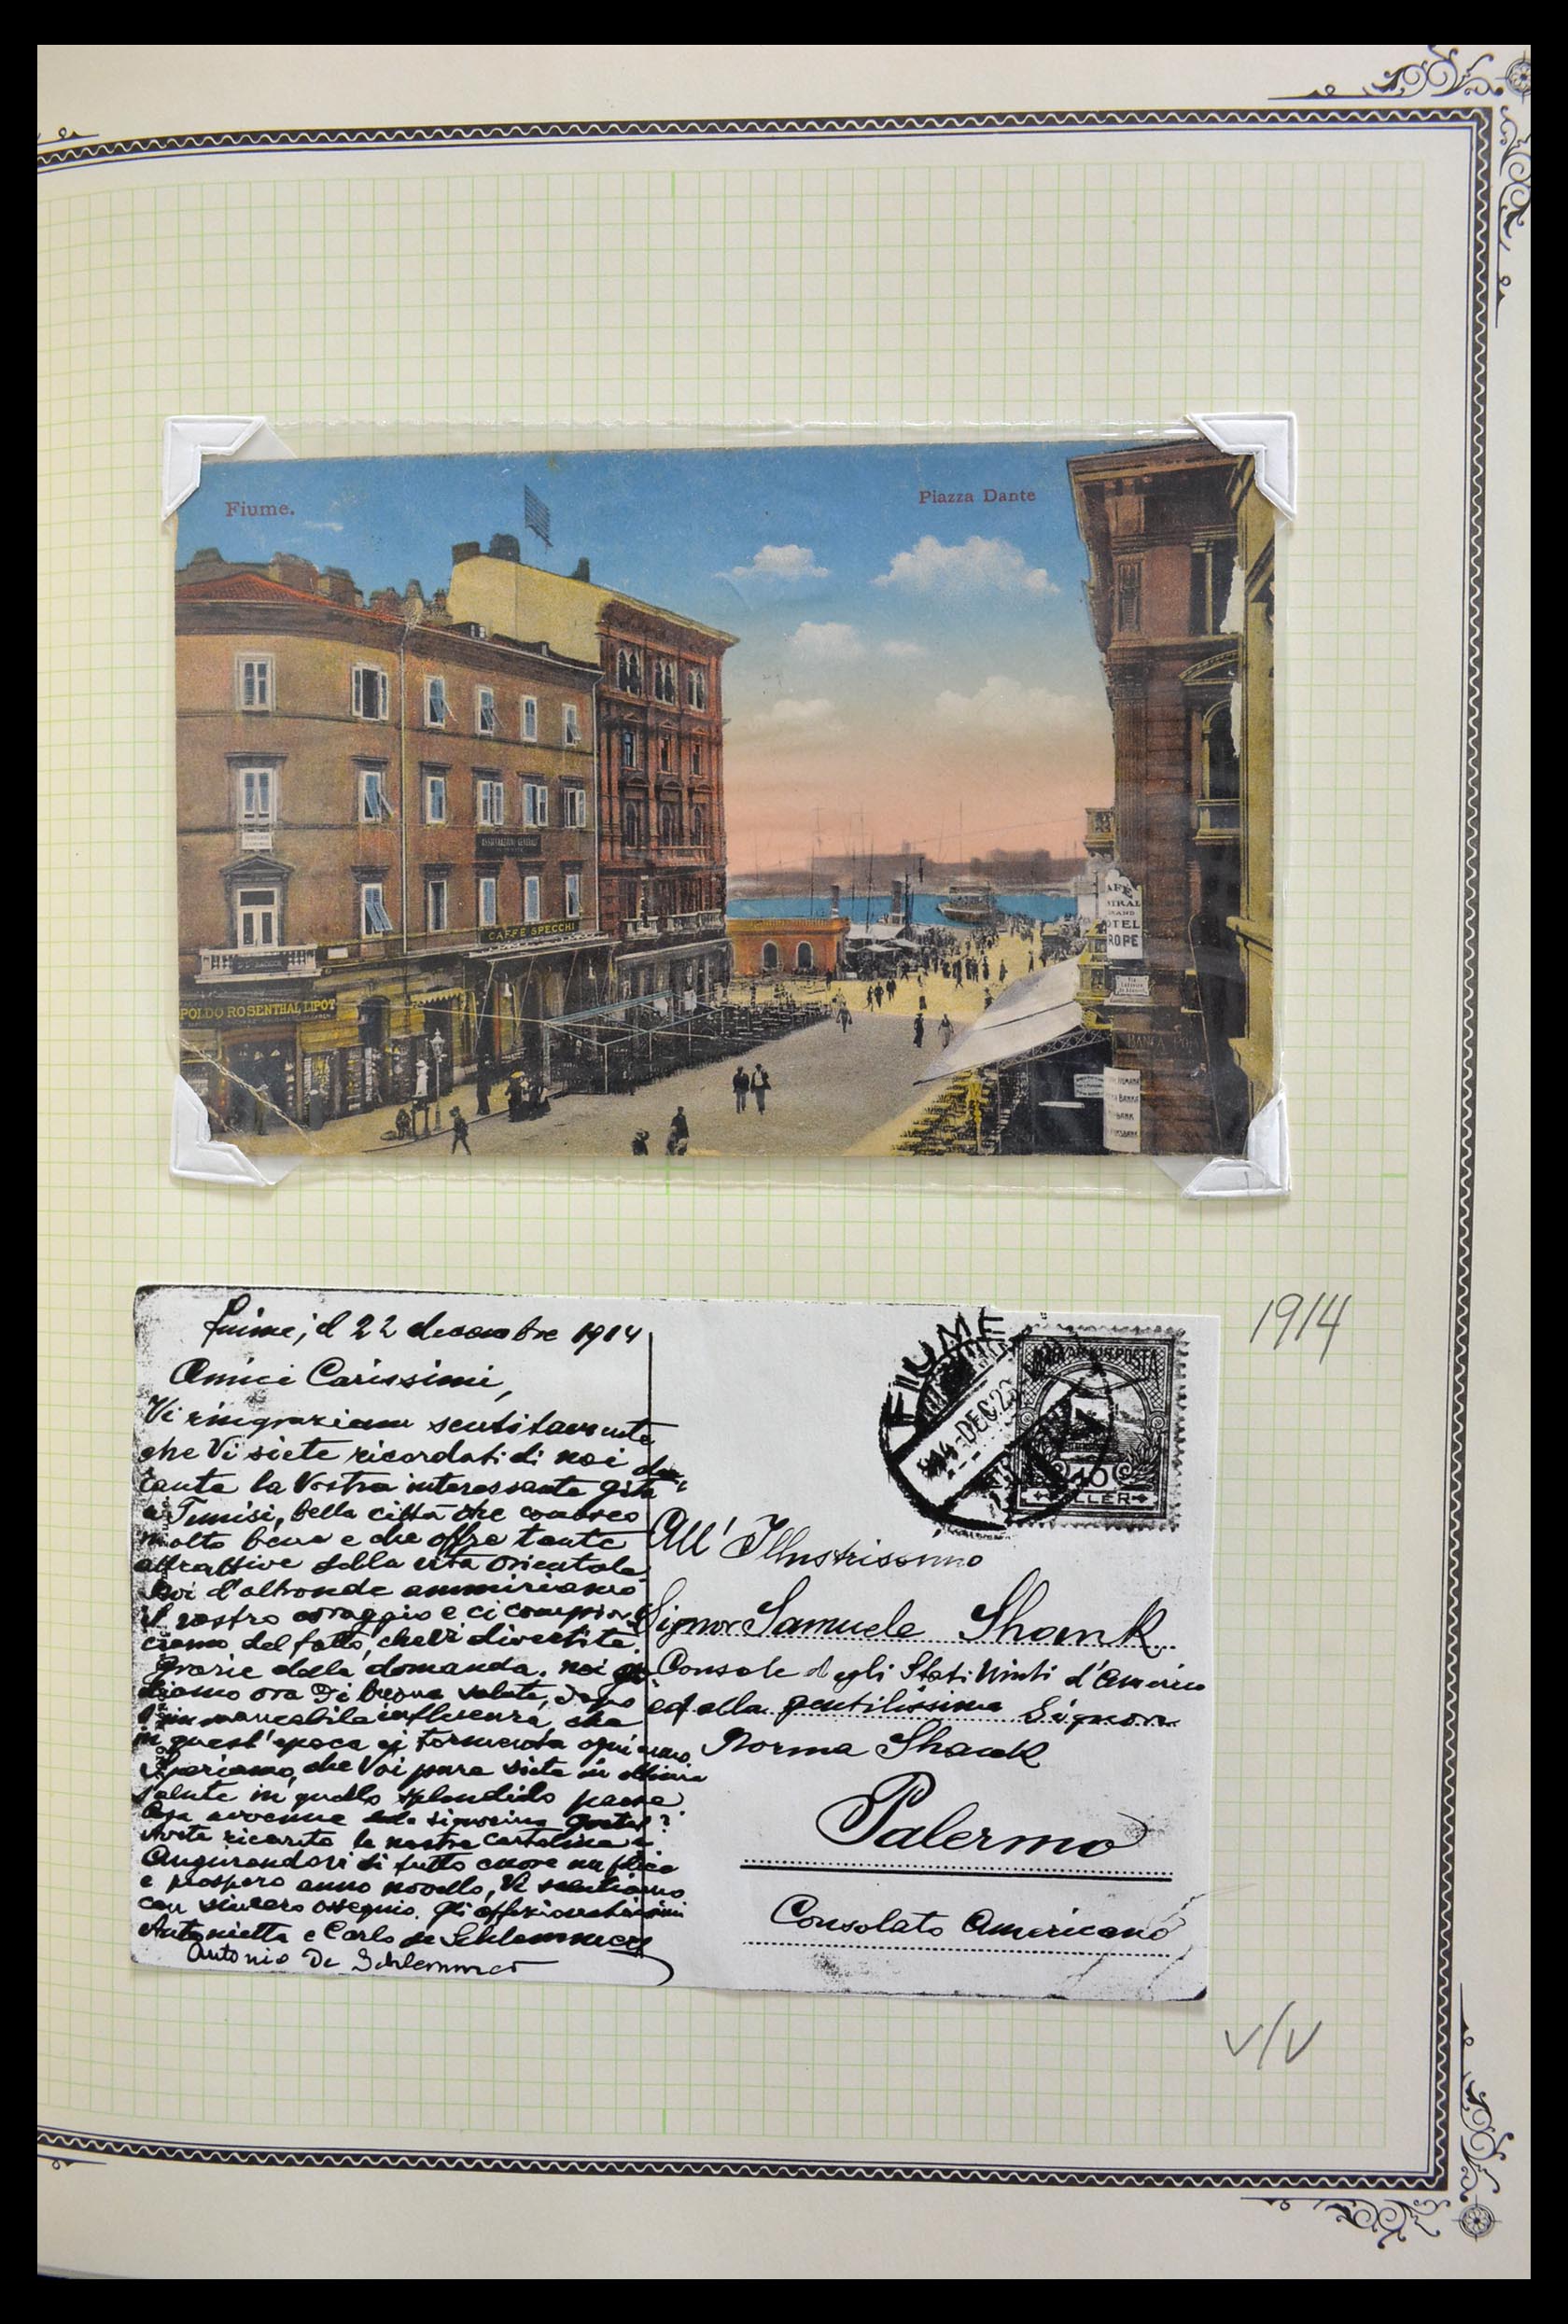 Fiume.
Piazza Dante
CAFFE SPECCHI
POLDO ROSENTHAL LIPOT
AFE
TRAL
RAND
OTEL
ROPE
BANCA
BANKA
BANK
1914
Fiume, il 22 decembre 1914
Amici Carissimi,
Vi ringraziamo sentitamente
che Vi siete ricordati di noi du-
rante la Vostra interessante gita
a Tunisi, bella città che conosco
molto bene e che offre tante
attrattive della vita orientale
Noi d'altronde ammiriamo
il vostro coraggio e ci compia-
ciamo del fatto, che Vi divertite.
Grazie della domanda. noi go-
diamo ora di buona salute, dopo
l'immancabile influenza, che
in quest'epoca ci tormenta ogni anno
Speriamo, che Voi pure siete in ottima
salute in quello splendido paese
Cosa avvenne della signorina
Avete ricevuto la nostra cartolina?
Augurandovi di tutto cuore un felice
e prospero anno novello, Vi salutiamo
con sincero ossequio. Gli affezionatissimi
Antonietta e Carlo de Schlemmer
Antonio De Schlemmer
FIUME
914 DEC 23
MAGYAR KIR. POSTA
10
FILLER
All' Illustrissimo
Signor Samuele Shank
Console degli Stati Uniti d'America
ed alla gentilissima Signora
Norma Shank
Palermo
Consolato Americano
v/v